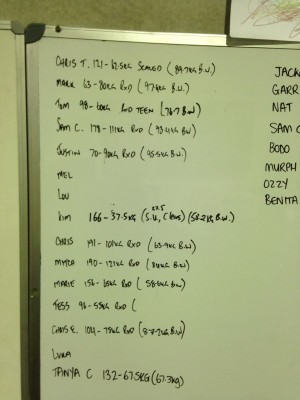 CHRIS T. 121-62.5KG SCALED (89.7KG B.W.)
MARK 63-80KG RXD (97.4KG B.W.)
TOM 98-60KG RXD TEEN (76.7 B.W)
SAM C. 178-111KG RXD (93.4KG B.W)
JUSTIN 70-90KG RXD (95.5KG B.W.)
MEL
LOU
KIM 166-37.5KG (S.U, C LEVS) (58.2KG B.W.)
CHRIS 191-101KG RXD (83.9KG B.W)
190-121KG RXD (B.W)
MARIE 156-KG RXD (58.6KG B.W)
TESS 96-55KG RXD (
CHRIS E. 104-75KG RXD (B.W)
LUKA
TANYA C 132-67.5KG (67.3KG)
JACK
GARR
NAT
SAM C
BODO
MURPH
OZZY
BENITA